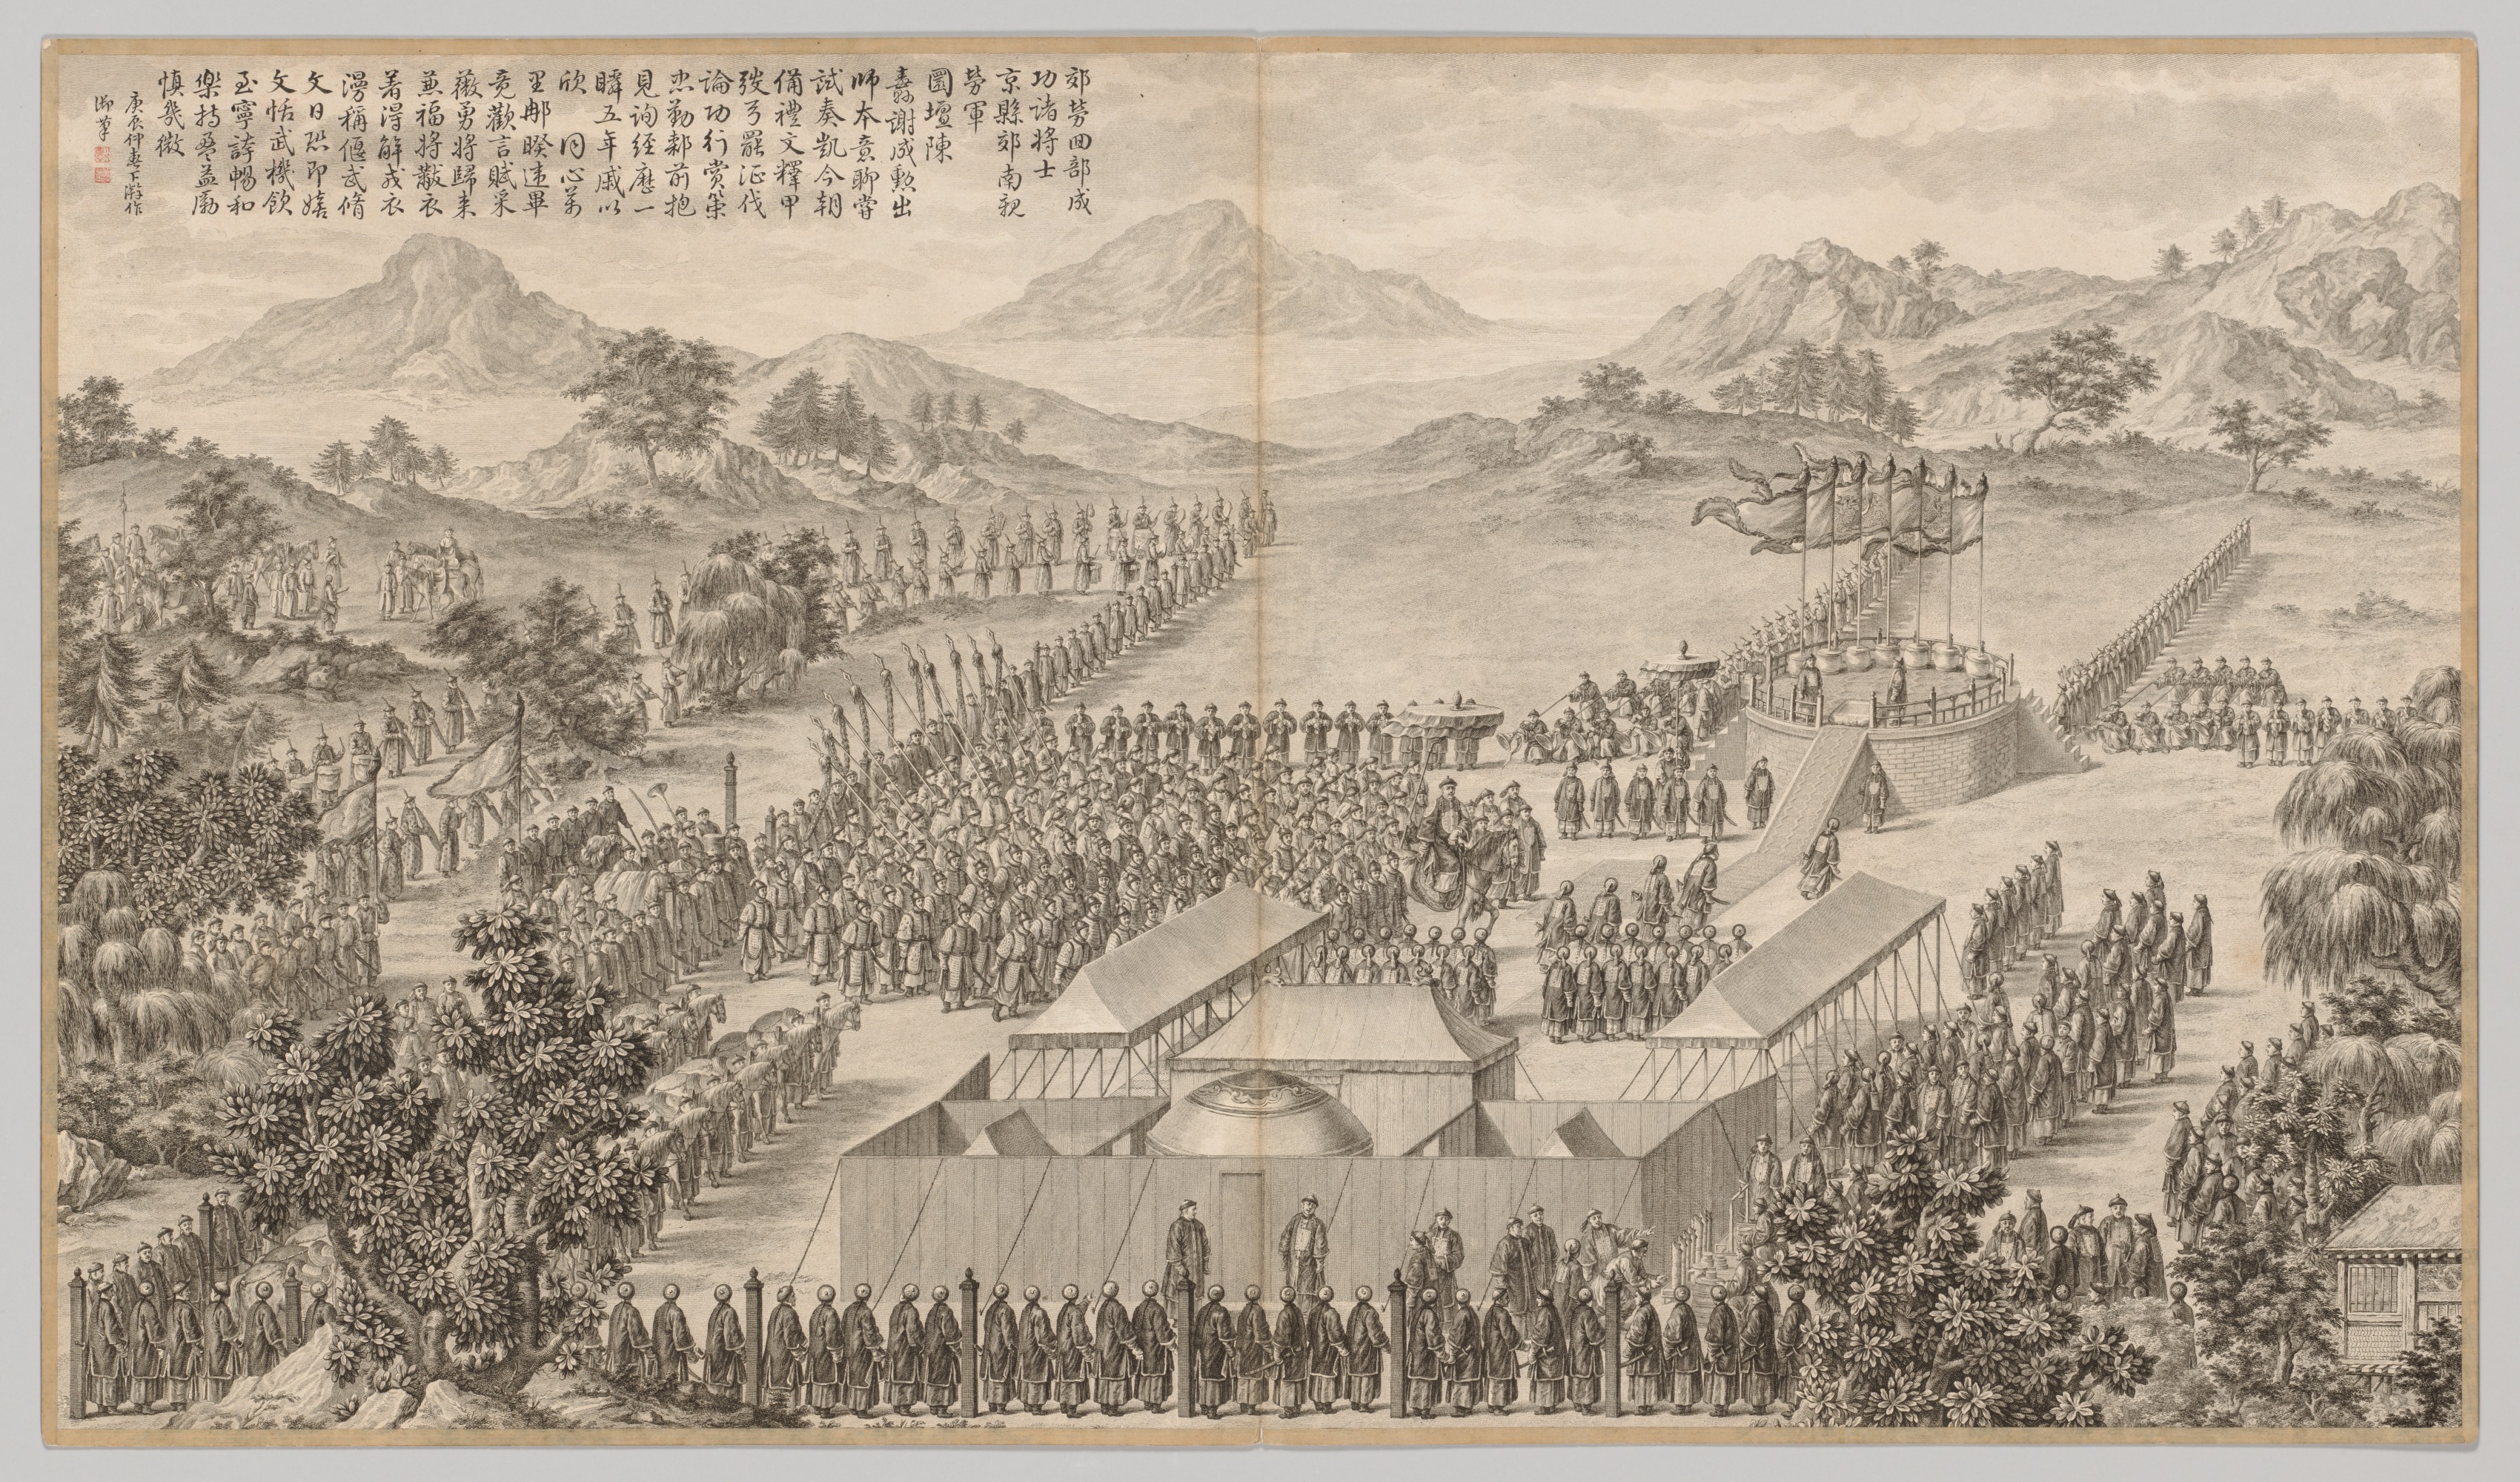 郊勞回部成
功諸將士
京縣郊南親
勞軍
圜壇陳
纛謝成勲出
師本意聊嘗
試奏凱今朝
備禮文釋甲
弢弓罷征伐
論功行賞策
忠勤䣛前抱
見詢經歷一
瞬五年戚以
欣 同心萬
里那暌違畢
竟歡言賦采
薇勇將歸來
兼福將黻衣
着得解戎衣
漫稱偃武脩
文日恐即嬉
文恬武機飲
至寧誇暢和
樂持盈益勵
慎幾微
庚辰仲春下澣作
御筆